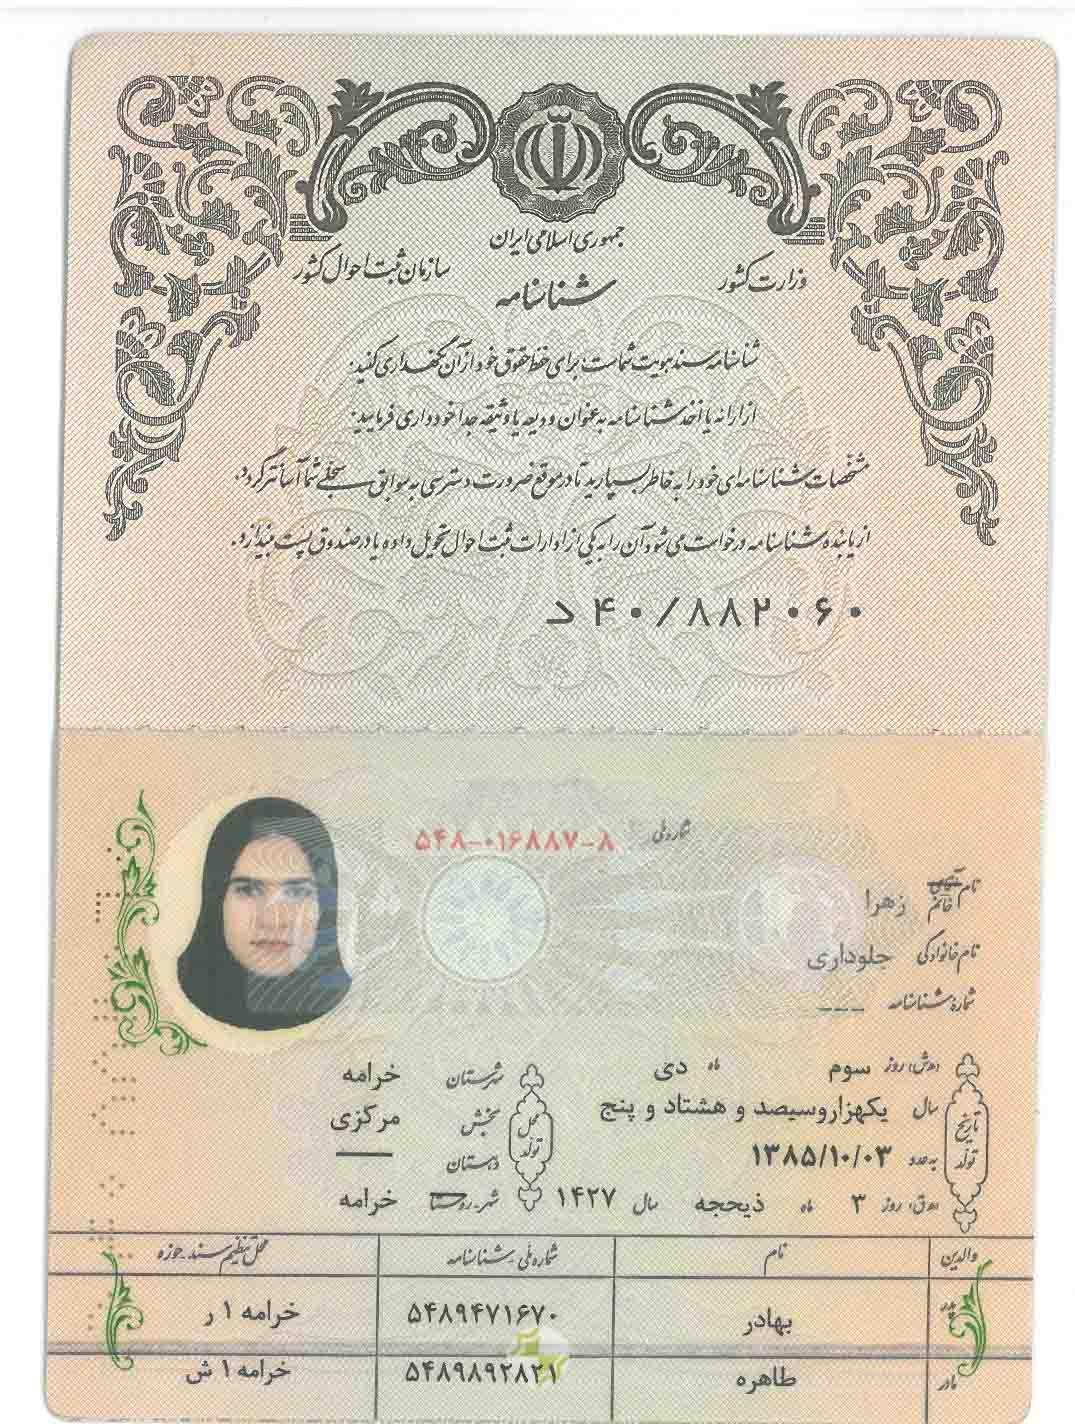 جمهوری اسلامی ایران
وزارت کشور
سازمان ثبت احوال کشور
شناسنامه
شناسنامه سند هویت شماست برای حفظ حقوق خود از آن نگهداری کنید.
از ارائه یا اخذ شناسنامه به عنوان ودیعه یا وثیقه جداً خودداری فرمایید.
مشخصات شناسنامه‌ای خود را به خاطر بسپارید تا در موقع ضرورت دسترسی به سوابق سجلی شما آسانتر گردد.
از یابنده شناسنامه درخواست می‌شود آن را به یکی از ادارات ثبت احوال تحویل داده یا در صندوق پست بیندازد.
د ۴۰/۸۸۲۰۶۰
شماره ملی ۵۴۸-۰۱۶۸۸۷-۸
نام آقای خانم زهرا
نام خانوادگی جلوداری
شماره شناسنامه ---
تاریخ تولد
(ه‍.ش) روز سوم ماه دی
سال یکهزاروسیصد و هشتاد و پنج
به عدد ۱۳۸۵/۱۰/۰۳
(ه‍.ق) روز ۳ ماه ذیحجه سال ۱۴۲۷
محل تولد
شهرستان خرامه
بخش مرکزی
دهستان ——
شهر-روستا خرامه
والدین نام شماره ملی-شناسنامه محل تنظیم سند-حوزه
پدر بهادر ۵۴۸۹۴۷۱۶۷۰ خرامه ۱ ر
مادر طاهره ۵۴۸۹۸۹۲۸۲۱ خرامه ۱ ش